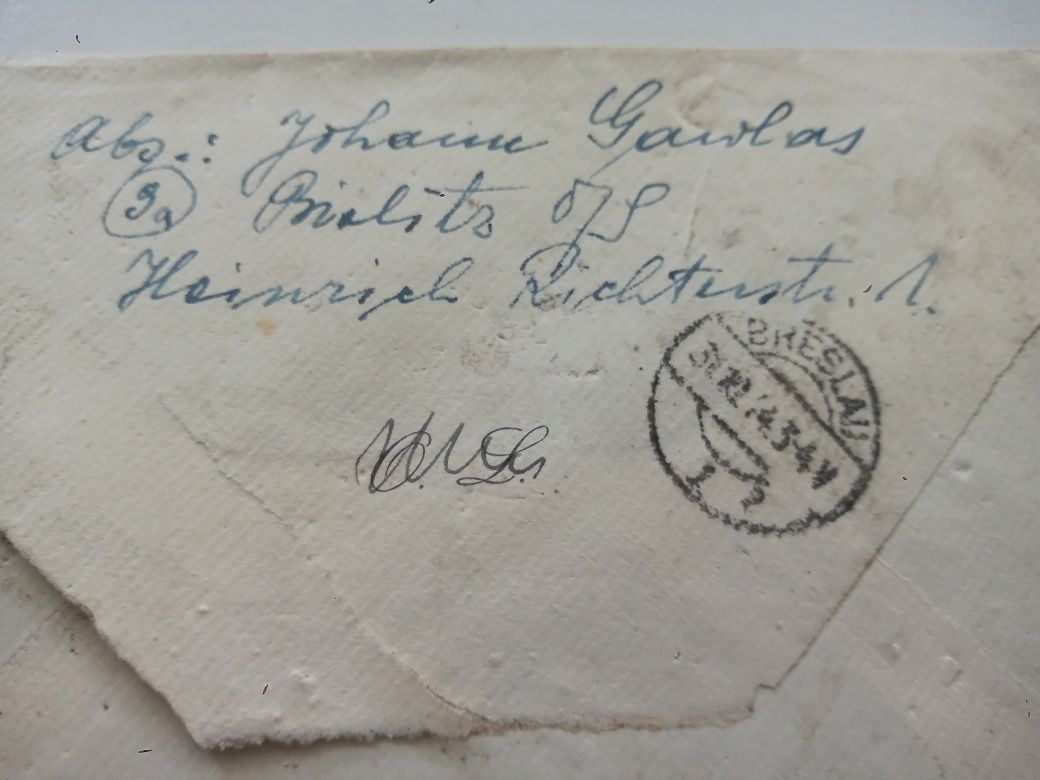 Abs.: Johann Gawlas
9a Bielitz O/S
Heinrich Richterstr. 1.
BRESLAU
1